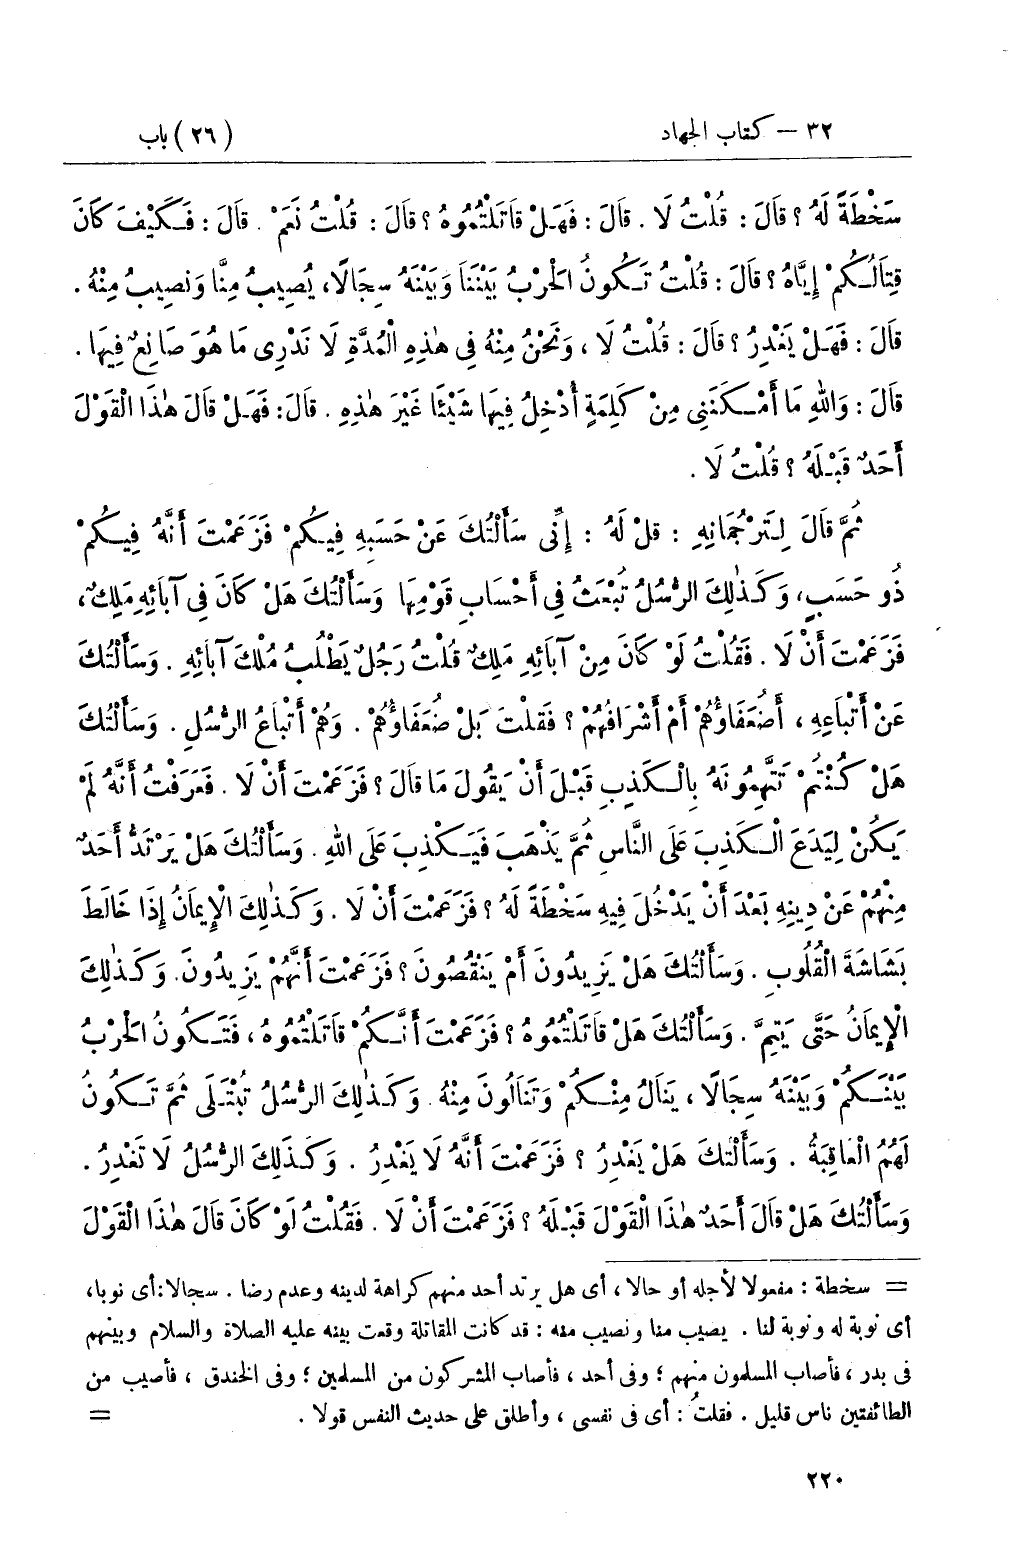 ٣٢ — كتاب الجهاد
(٢٦) باب
سَخْطَةً لَهُ ؟ قَالَ : قُلْتُ لَا . قَالَ : فَهَلْ قَاتَلْتُمُوهُ ؟ قَالَ : قُلْتُ نَعَمْ . قَالَ : فَكَيْفَ كَانَ
قِتَالُكُمْ إِيَّاهُ ؟ قَالَ : قُلْتُ تَكُونُ الْحَرْبُ بَيْنَنَا وَبَيْنَهُ سِجَالًا ، يُصِيبُ مِنَّا وَنُصِيبُ مِنْهُ .
قَالَ : فَهَلْ يَغْدِرُ ؟ قَالَ : قُلْتُ لَا ، وَنَحْنُ مِنْهُ فِي هٰذِهِ الْمُدَّةِ لَا نَدْرِى مَا هُوَ صَانِعٌ فِيهَا .
قَالَ : وَاللهِ مَا أَمْكَنَنِى مِنْ كَلِمَةٍ أُدْخِلُ فِيهَا شَيْئًا غَيْرَ هٰذِهِ . قَالَ : فَهَلْ قَالَ هٰذَا الْقَوْلَ
أَحَدٌ قَبْلَهُ ؟ قُلْتُ لَا .
ثُمَّ قَالَ لِتَرْجُمَانِهِ : قُلْ لَهُ : إِنِّى سَأَلْتُكَ عَنْ حَسَبِهِ فِيكُمْ فَزَعَمْتَ أَنَّهُ فِيكُمْ
ذُو حَسَبٍ ، وَكَذٰلِكَ الرُّسُلُ تُبْعَثُ فِى أَحْسَابِ قَوْمِهَا وَسَأَلْتُكَ هَلْ كَانَ فِى آبَائِهِ مَلِكٌ ،
فَزَعَمْتَ أَنْ لَا . فَقُلْتُ لَوْ كَانَ مِنْ آبَائِهِ مَلِكٌ قُلْتُ رَجُلٌ يَطْلُبُ مُلْكَ آبَائِهِ . وَسَأَلْتُكَ
عَنْ أَتْبَاعِهِ ، أَضُعَفَاؤُهُمْ أَمْ أَشْرَافُهُمْ ؟ فَقُلْتَ بَلْ ضُعَفَاؤُهُمْ . وَهُمْ أَتْبَاعُ الرُّسُلِ . وَسَأَلْتُكَ
هَلْ كُنْتُمْ تَتَّهِمُونَهُ بِالْكَذِبِ قَبْلَ أَنْ يَقُولَ مَا قَالَ ؟ فَزَعَمْتَ أَنْ لَا . فَعَرَفْتُ أَنَّهُ لَمْ
يَكُنْ لِيَدَعَ الْكَذِبَ عَلَى النَّاسِ ثُمَّ يَذْهَبَ فَيَكْذِبَ عَلَى اللهِ . وَسَأَلْتُكَ هَلْ يَرْتَدُّ أَحَدٌ
مِنْهُمْ عَنْ دِينِهِ بَعْدَ أَنْ يَدْخُلَ فِيهِ سَخْطَةً لَهُ ؟ فَزَعَمْتَ أَنْ لَا . وَكَذٰلِكَ الْإِيمَانُ إِذَا خَالَطَ
بَشَاشَةَ الْقُلُوبِ . وَسَأَلْتُكَ هَلْ يَزِيدُونَ أَمْ يَنْقُصُونَ ؟ فَزَعَمْتَ أَنَّهُمْ يَزِيدُونَ . وَكَذٰلِكَ
الْإِيمَانُ حَتَّى يَتِمَّ . وَسَأَلْتُكَ هَلْ قَاتَلْتُمُوهُ ؟ فَزَعَمْتَ أَنَّكُمْ قَاتَلْتُمُوهُ ، فَتَكُونُ الْحَرْبُ
بَيْنَكُمْ وَبَيْنَهُ سِجَالًا ، يَنَالُ مِنْكُمْ وَتَنَالُونَ مِنْهُ . وَكَذٰلِكَ الرُّسُلُ تُبْتَلَى ثُمَّ تَكُونُ
لَهُمُ الْعَاقِبَةُ . وَسَأَلْتُكَ هَلْ يَغْدِرُ ؟ فَزَعَمْتَ أَنَّهُ لَا يَغْدِرُ . وَكَذَلِكَ الرُّسُلُ لَا تَغْدِرُ .
وَسَأَلْتُكَ هَلْ قَالَ أَحَدٌ هٰذَا الْقَوْلَ قَبْلَهُ ؟ فَزَعَمْتَ أَنْ لَا . فَقُلْتُ لَوْ كَانَ قَالَ هٰذَا الْقَوْلَ
= سخطة : مفعولا لأجله أو حالا ، أى هل يرتد أحد منهم كراهة لدينه وعدم رضا . سجالا : أى نوبا ،
أى نوبة له ونوبة لنا . يصيب منا ونصيب منه : قد كانت المقاتلة وقعت بينه عليه الصلاة والسلام وبينهم
فى بدر ، فأصاب المسلمون منهم ؛ وفى أحد ، فأصاب المشركون من المسلمين ؛ وفى الخندق ، فأصيب من
الطائفتين ناس قليل . فقلتُ : أى فى نفسى ، وأطلق على حديث النفس قولا . =
٢٢٠